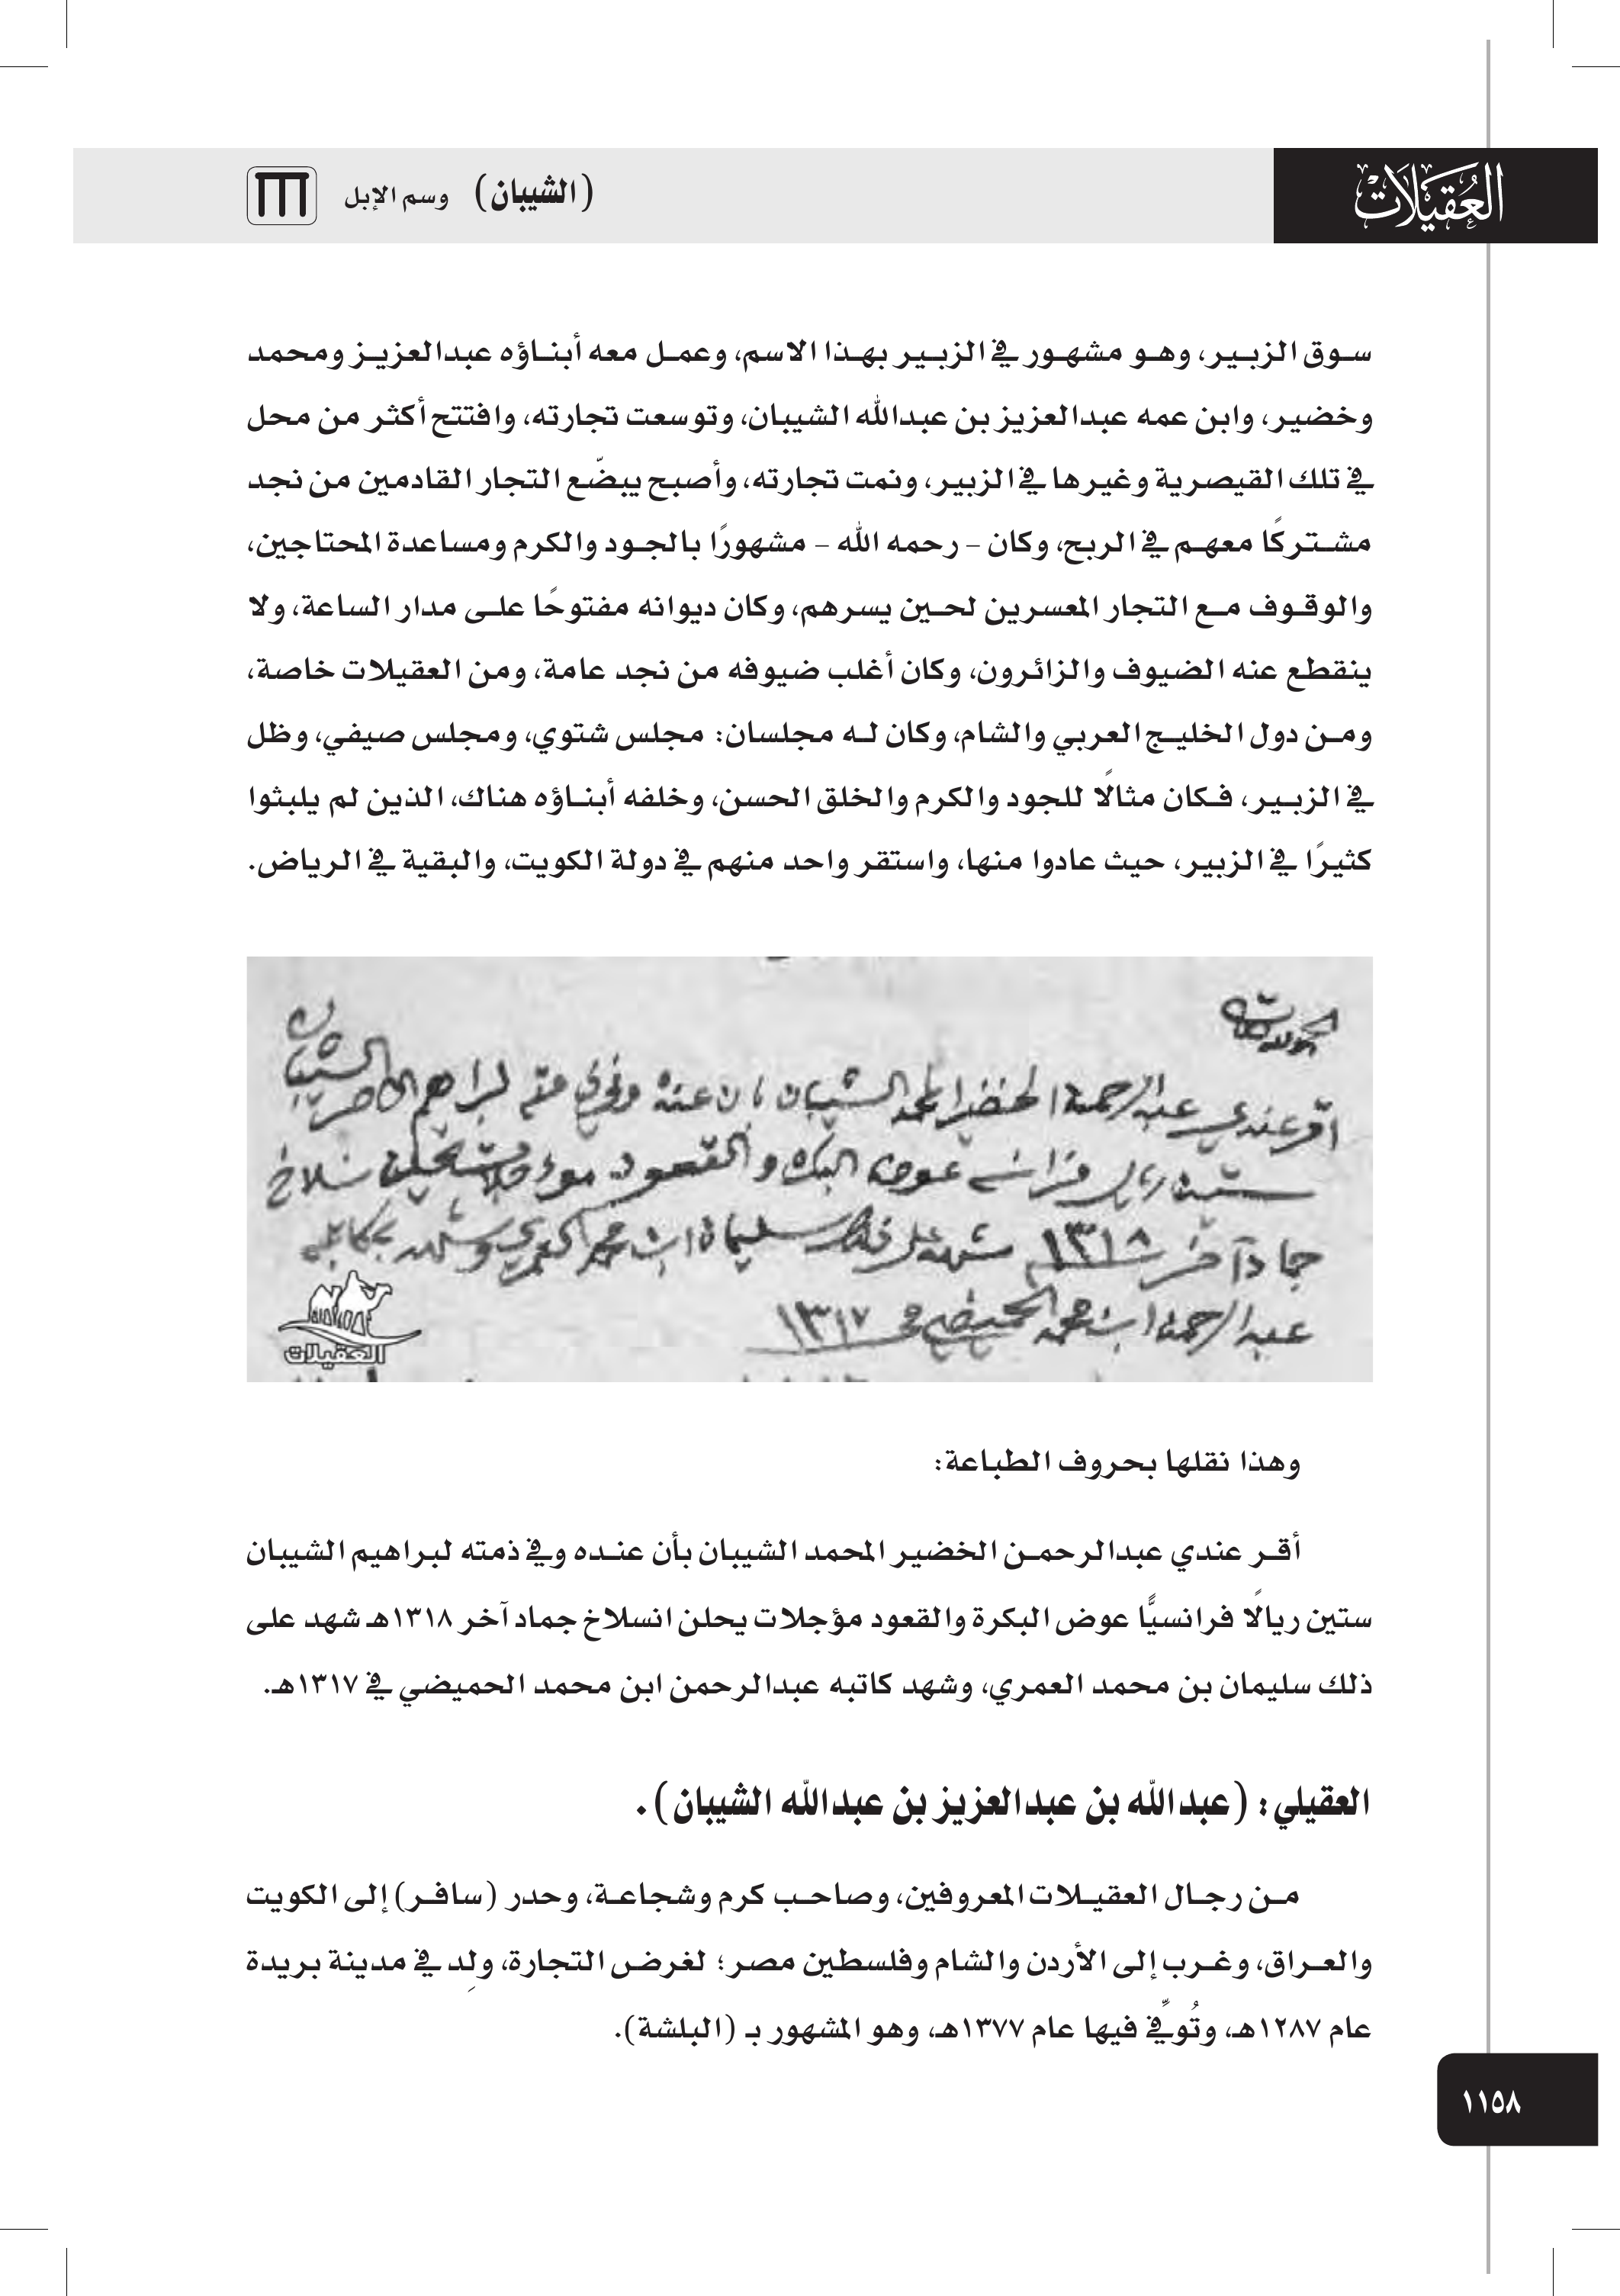 العُقَيلات
(الشيبان) وسم الإبل
سوق الزبير، وهو مشهور في الزبير بهذا الاسم، وعمل معه أبناؤه عبدالعزيز ومحمد
وخضير، وابن عمه عبدالعزيز بن عبدالله الشيبان، وتوسعت تجارته، وافتتح أكثر من محل
في تلك القيصرية وغيرها في الزبير، ونمت تجارته، وأصبح يبضّع التجار القادمين من نجد
مشتركًا معهم في الربح، وكان – رحمه الله – مشهورًا بالجود والكرم ومساعدة المحتاجين،
والوقوف مع التجار المعسرين لحين يسرهم، وكان ديوانه مفتوحًا على مدار الساعة، ولا
ينقطع عنه الضيوف والزائرون، وكان أغلب ضيوفه من نجد عامة، ومن العقيلات خاصة،
ومن دول الخليج العربي والشام، وكان له مجلسان: مجلس شتوي، ومجلس صيفي، وظل
في الزبير، فكان مثالًا للجود والكرم والخلق الحسن، وخلفه أبناؤه هناك، الذين لم يلبثوا
كثيرًا في الزبير، حيث عادوا منها، واستقر واحد منهم في دولة الكويت، والبقية في الرياض.
اقر عندي عبدالرحمن الخضير المحمد الشيبان بان عنده وفي ذمته لبراهيم الشيبان
ستين ريال فرانسه عوض البكره والقعود موءجلات يحلن نسلاخ
جماد آخر ١٣١٨ شهد على ذلك سليمان ابن محمد العمري وشهد به كاتبه
عبدالرحمن ابن محمد الحميضي ١٣١٧
العقيلات
وهذا نقلها بحروف الطباعة:
أقر عندي عبدالرحمن الخضير المحمد الشيبان بأن عنده وفي ذمته لبراهيم الشيبان
ستين ريالًا فرانسيًّا عوض البكرة والقعود مؤجلات يحلن انسلاخ جماد آخر ١٣١٨هـ شهد على
ذلك سليمان بن محمد العمري، وشهد كاتبه عبدالرحمن ابن محمد الحميضي في ١٣١٧هـ.
العقيلي: (عبدالله بن عبدالعزيز بن عبدالله الشيبان).
من رجال العقيلات المعروفين، وصاحب كرم وشجاعة، وحدر (سافر) إلى الكويت
والعراق، وغرب إلى الأردن والشام وفلسطين مصر؛ لغرض التجارة، ولِد في مدينة بريدة
عام ١٢٨٧هـ، وتُوفِّي فيها عام ١٣٧٧هـ، وهو المشهور بـ (البلشة).
١١٥٨